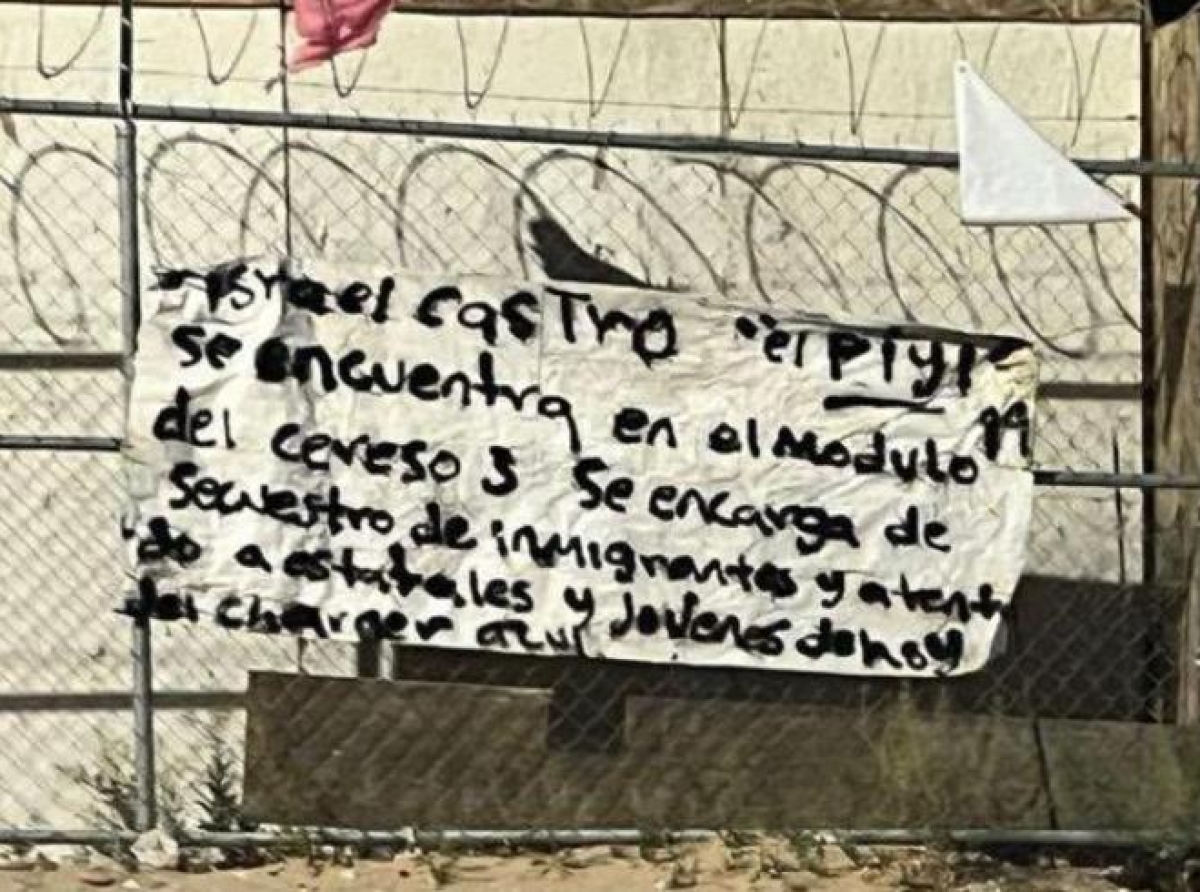 Israel Castro "el Piyi"
Se encuentra en el Modulo 99
del cereso 3 Se encarga de
Secuestro de inmigrantes y atent
do a estatales y Jovenes de hoy
del charger azul